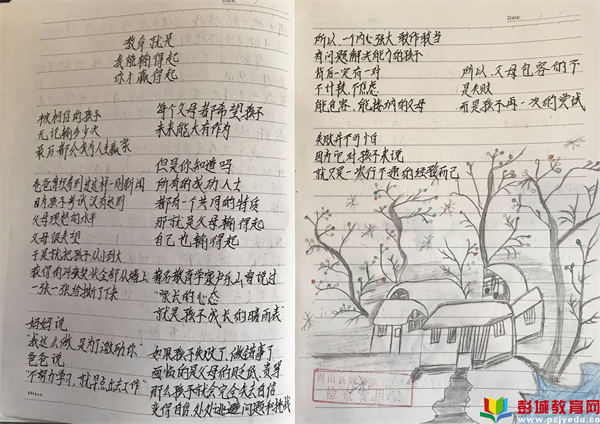 Date.
教育就是
我能输得起
你才赢得起
被相信的孩子
无论输多少次
最后都会成为人生赢家
爸爸曾看到过这样一则新闻
因为孩子考试没有达到
父母理想的水平
父母很失望
于是就把孩子从小到大
获得的
奖状全部从墙上
一张一张给撕了下来
妈妈说
"我这么做是为了激励你"
爸爸说
"不努力学习,就早点出去工作"
......
每个父母都希望孩子
未来能大有作为
但是你知道吗
所有的成功人士
都有一个共同的特质
那就是父母输得起
自己也输得起
著名教育学家卢乐山曾说过
"家长的心态
就是孩子成长的晴雨表"
如果孩子失败了,做错事了
面临的是父母的贬低、责骂
那么孩子就会完全失去自信
变得自卑,处处逃避问题和挑战
Date.
所以,一个内心强大、敢作敢当
有问题解决能力的孩子
背后一定有一对
不计较、不焦虑
能包容、能接纳的父母
所以,父母包容的不
是失败
而是孩子再一次的尝试
失败并不可怕
因为它对孩子来说
就只是一次行不通的经验而已
彭城教育网
www.pcjyedu.cn